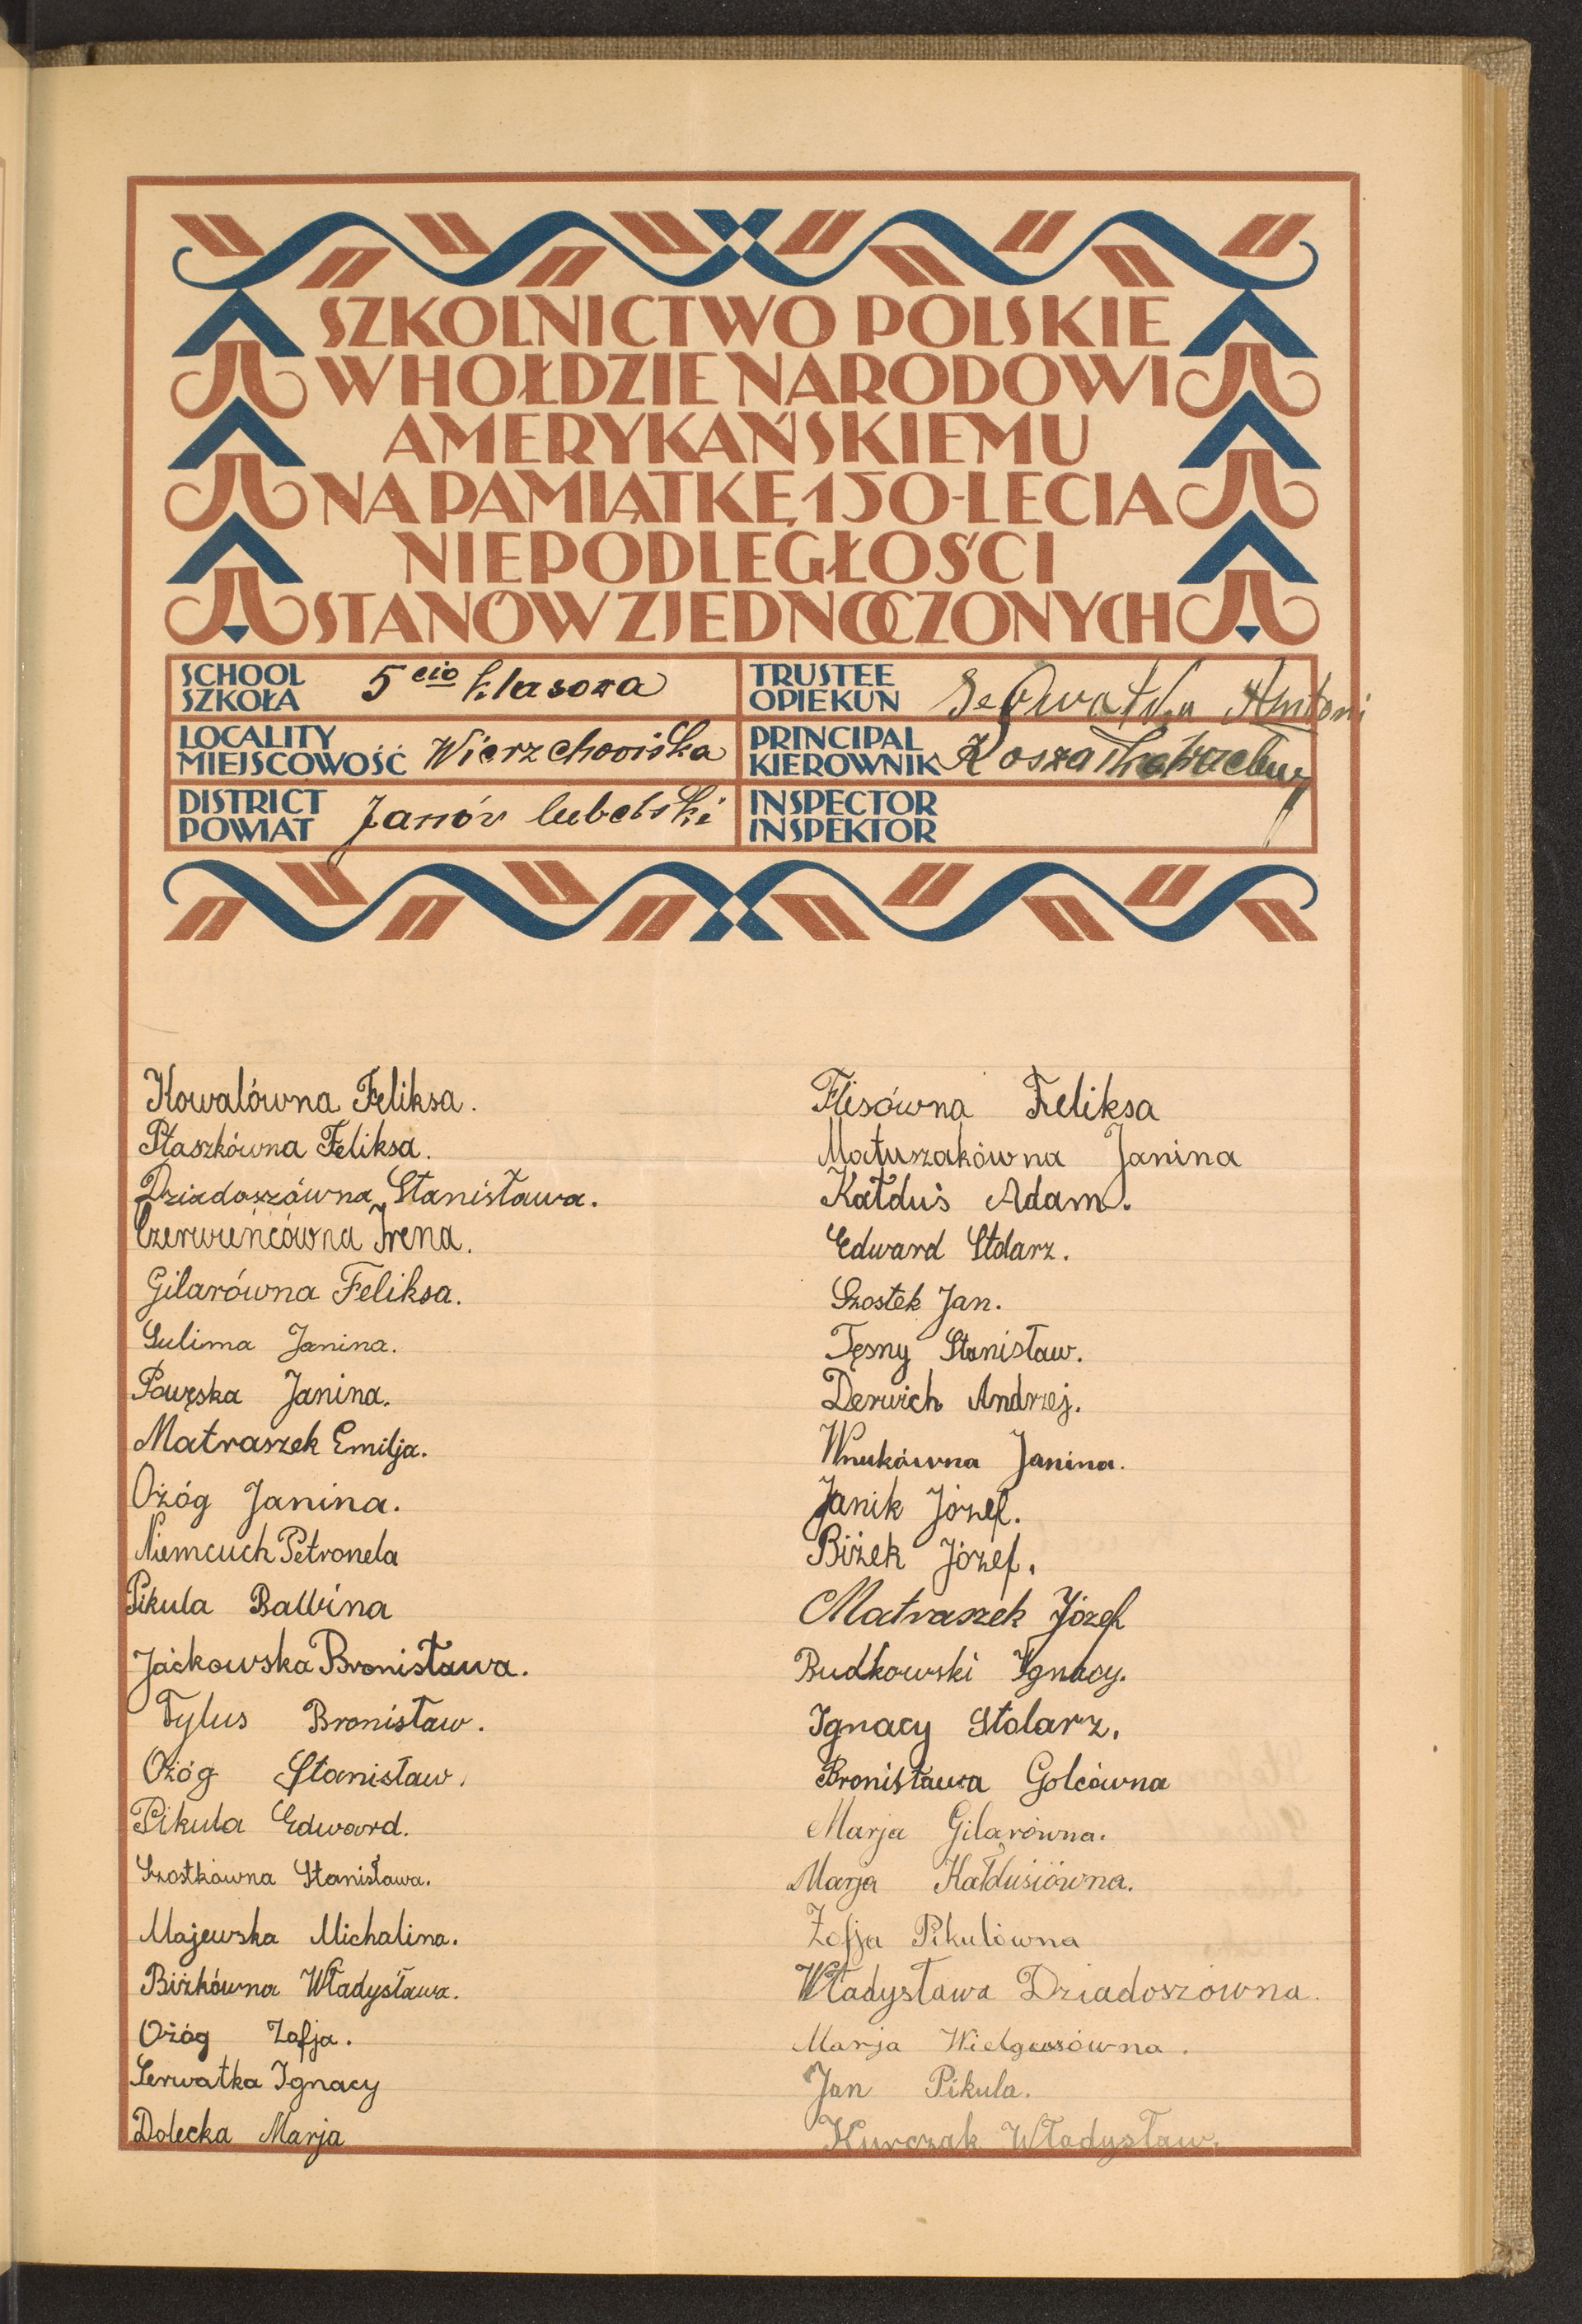 SZKOLNICTWO POLSKIE
W HOŁDZIE NARODOWI
AMERYKAŃSKIEMU
NA PAMIĄTKĘ 150-LECIA
NIEPODLEGŁOŚCI
STANÓW ZJEDNOCZONYCH
SCHOOL
SZKOŁA
5 cio klasowa
TRUSTEE
OPIEKUN
Antoni
LOCALITY
MIEJSCOWOŚĆ
Wierzchowiska
PRINCIPAL
KIEROWNIK
DISTRICT
POWIAT
Janów lubelski
INSPECTOR
INSPEKTOR
Kowalówna Feliksa.
Ptaszkówna Feliksa.
Dziadoszówna Stanisława.
Czerwieńcówna Irena.
Gilarówna Feliksa.
Sulima Janina.
Powęska Janina.
Matraszek Emilja.
Ożóg Janina.
Niemcuch Petronela
Pikula Balbina
Jaćkowska Bronisława.
Tylus Bronisław.
Ożóg Stanisław.
Pikula Edward.
Szostkówna Stanisława.
Majewska Michalina.
Biżkówna Władysława.
Ożóg Zofja.
Serwatka Ignacy
Dolecka Marja
Flisówna Feliksa
Matuszakówna Janina
Kałduś Adam.
Edward Stolarz.
Szostek Jan.
Tęsny Stanisław.
Derwich Andrzej.
Wnukówna Janina.
Janik Józef.
Biżek Józef.
Matraszek Józef
Budkowski Ignacy.
Ignacy Stolarz.
Bronisława Golcówna
Marja Gilarówna.
Marja Kałdusiówna.
Zofja Pikulówna
Władysława Dziadoszówna.
Marja Wielgusówna.
Jan Pikula.
Kurczak Władysław.